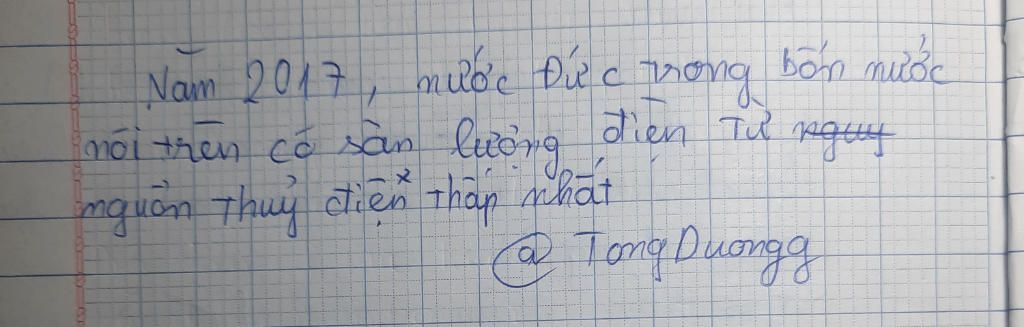 Năm 2017, nước Đức trong bốn nước
nói trên có sản lượng điện từ nguy
nguồn thuỷ điện thấp nhất
@ TongDuongg